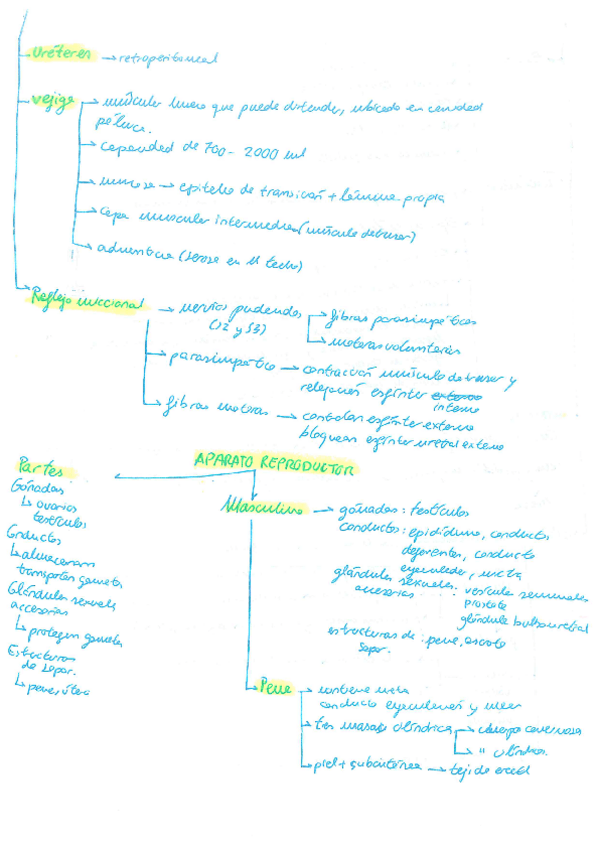 Uréteres → retroperitoneal
vejiga → muscular hueco que puede distender, ubicado en cavidad
pélvica.
→ capacidad de 700 - 2000 ml
→ mucosa → epitelio de transición + lámina propia
→ capa muscular intermedia (músculo detrusor)
→ adventicia (serosa en el techo)
Reflejo miccional → nervios pudendos → fibras parasimpáticas
(S2 y S3) → motoras voluntarias
→ parasimpático → contracción músculo detrusor y
relajación esfínter externo
interno
→ fibras motoras → controlan esfínter externo
bloquean esfínter uretral externo
APARATO REPRODUCTOR
Partes
Gónadas
↳ ovarios
testículos
Conductos
↳ almacenan
transportan gametos
Glándulas sexuales
accesorias
↳ protegen gametos
Estructuras
de sopor.
↳ pene, útero
Masculino → gónadas: testículos
conductos: epidídimo, conductos
deferentes, conducto
eyaculador, uretra
glándulas sexuales: vesículas seminales
accesorias próstata
glándula bulbouretral
estructuras de: pene, escroto
sopor.
Pene → contiene uretra
conducto eyaculación y
→ tres masas cilíndricas → cuerpo cavernoso
→ "
→ piel + subcutánea → tejido eréctil